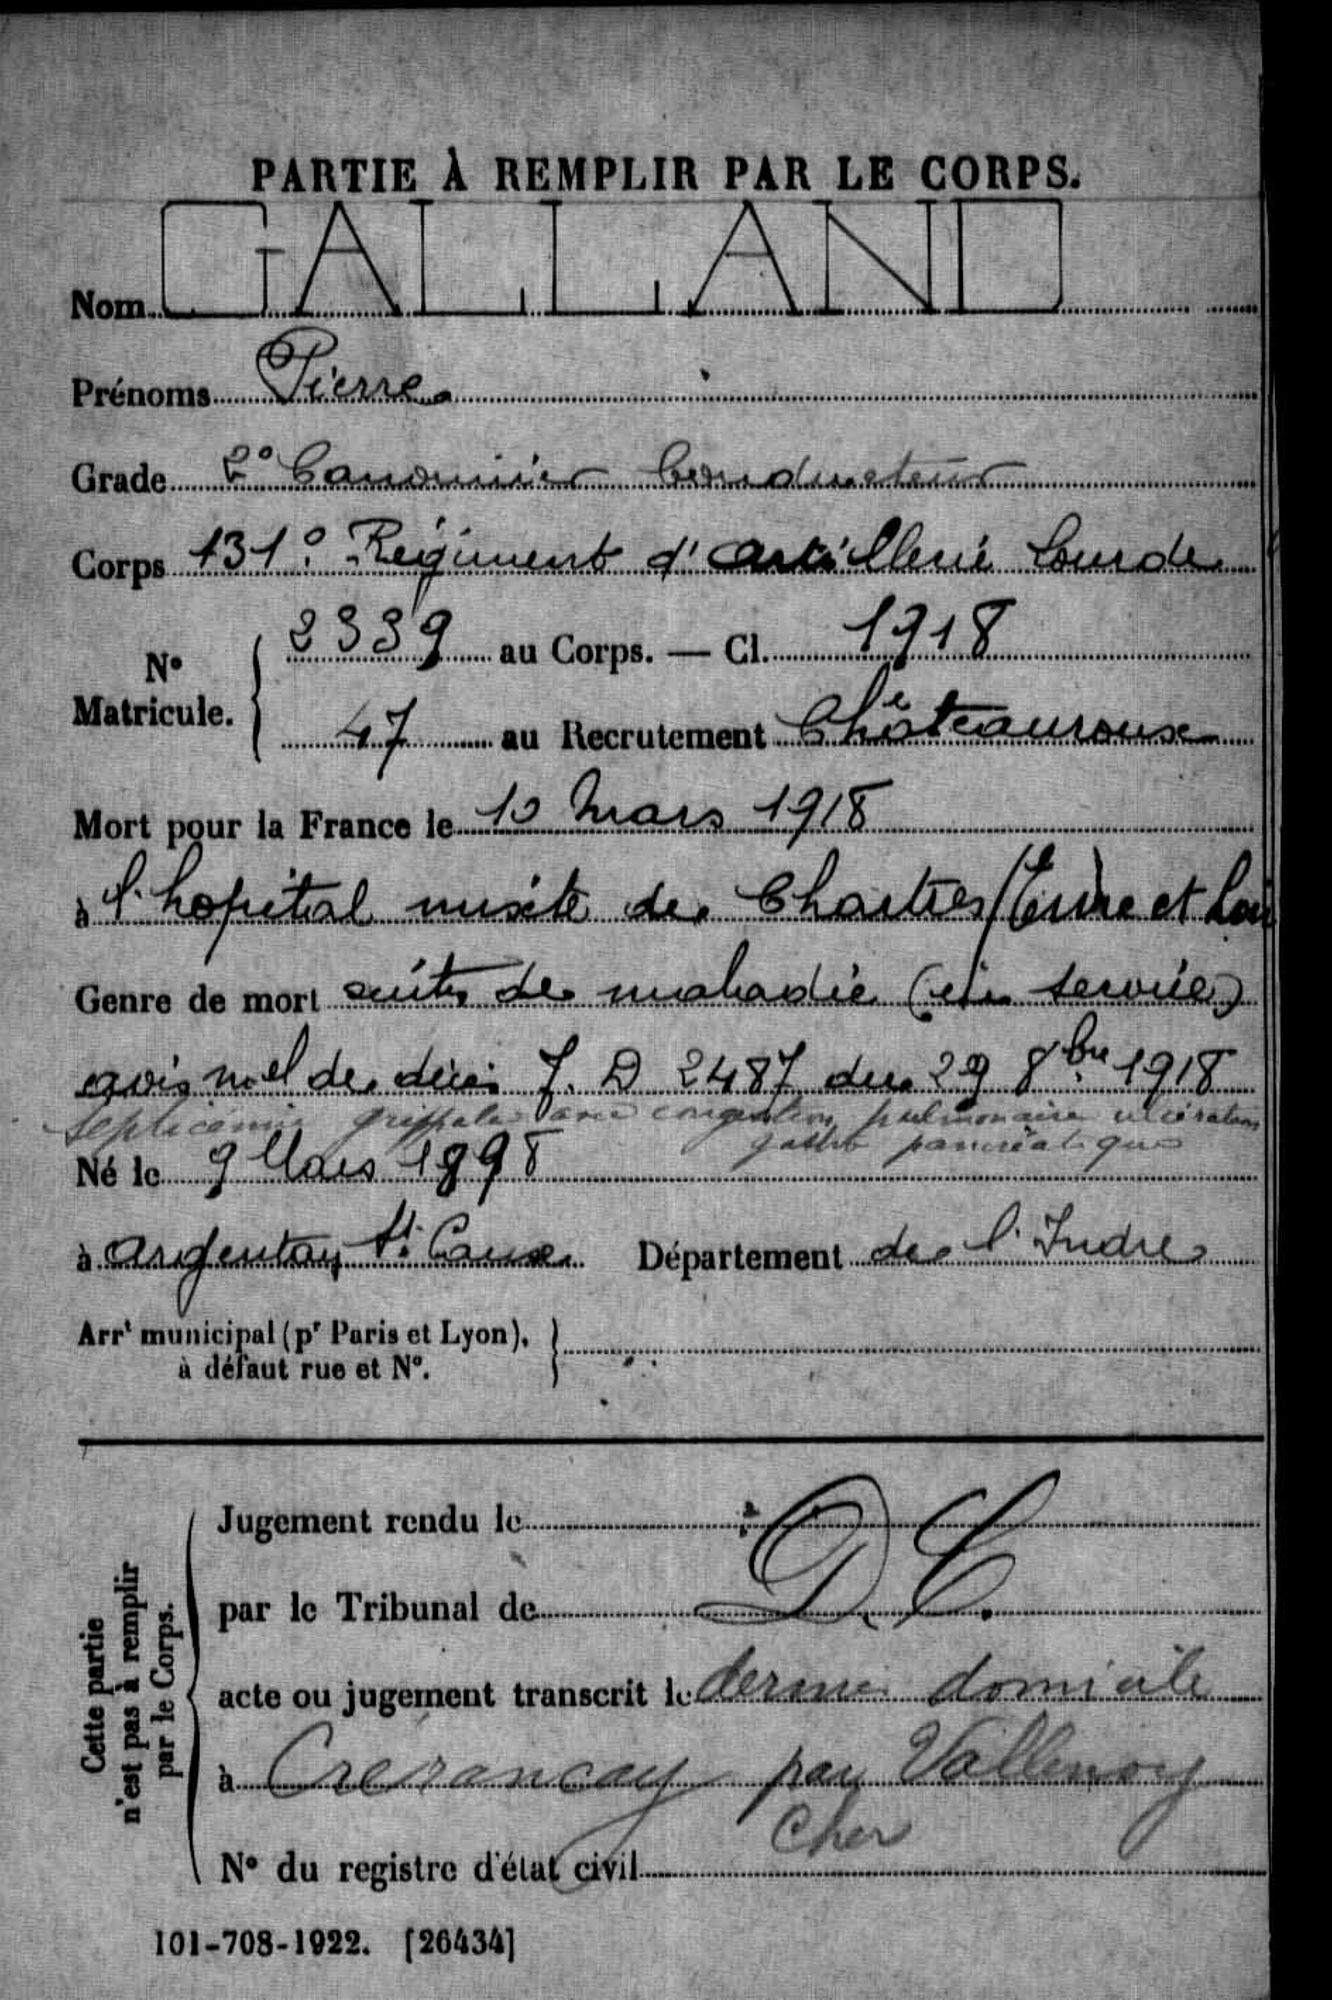 PARTIE À REMPLIR PAR LE CORPS.
Nom GALLAND
Prénoms Pierre
Grade 2e Canonnier Conducteur
Corps 131e Régiment d'Artillerie Lourde
N° Matricule. 2339 au Corps. — Cl. 1918
47 au Recrutement Châteauroux
Mort pour la France le 10 Mars 1918
à l'hopital mixte de Chartres (Eure et Loir
Genre de mort suites de maladie (en service)
avis mel de décès J. D 2487 du 29 8bre 1918
septicémie grippale avec congestion pulmonaire ulcération
gastro pancréatique
Né le 9 Mars 1898
à Argentay St. Département de l'Indre
Arrt municipal (pr Paris et Lyon),
à défaut rue et N°.
Cette partie
n'est pas à remplir
par le Corps.
Jugement rendu le
par le Tribunal de D. C.
acte ou jugement transcrit le dernier domicile
à Crézançay par Vallenay
Cher
N° du registre d'état civil
101-708-1922. [26434]